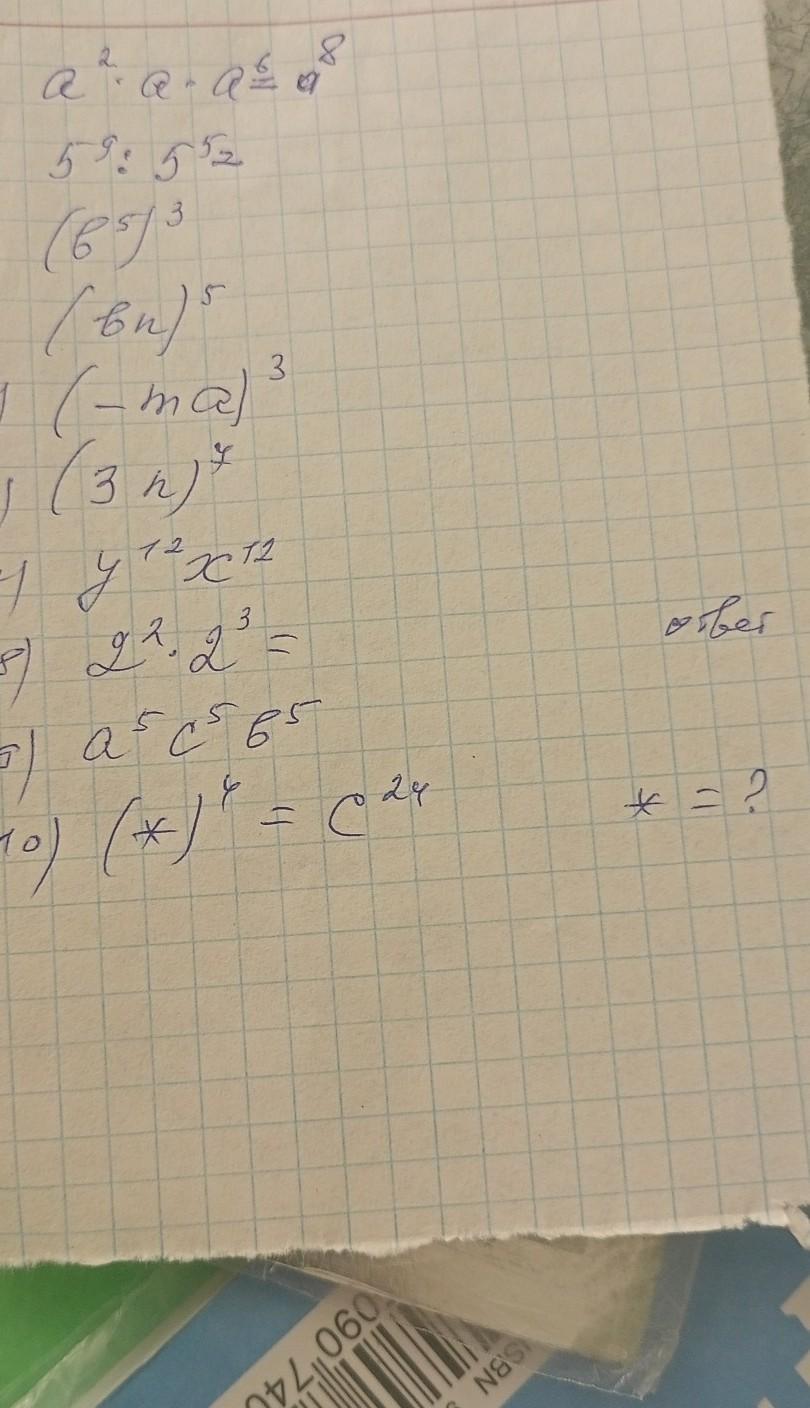 a² · a · a⁶ = a⁸
5⁹ : 5⁵ =
(b⁵)³
(bn)⁵
) (-ma)³
) (3n)⁷
) y¹²x¹²
8) 2² · 2³ =
ответ
) a⁵c⁵b⁵
10) (*)⁴ = c²⁴ * = ?
090 740
ISBN